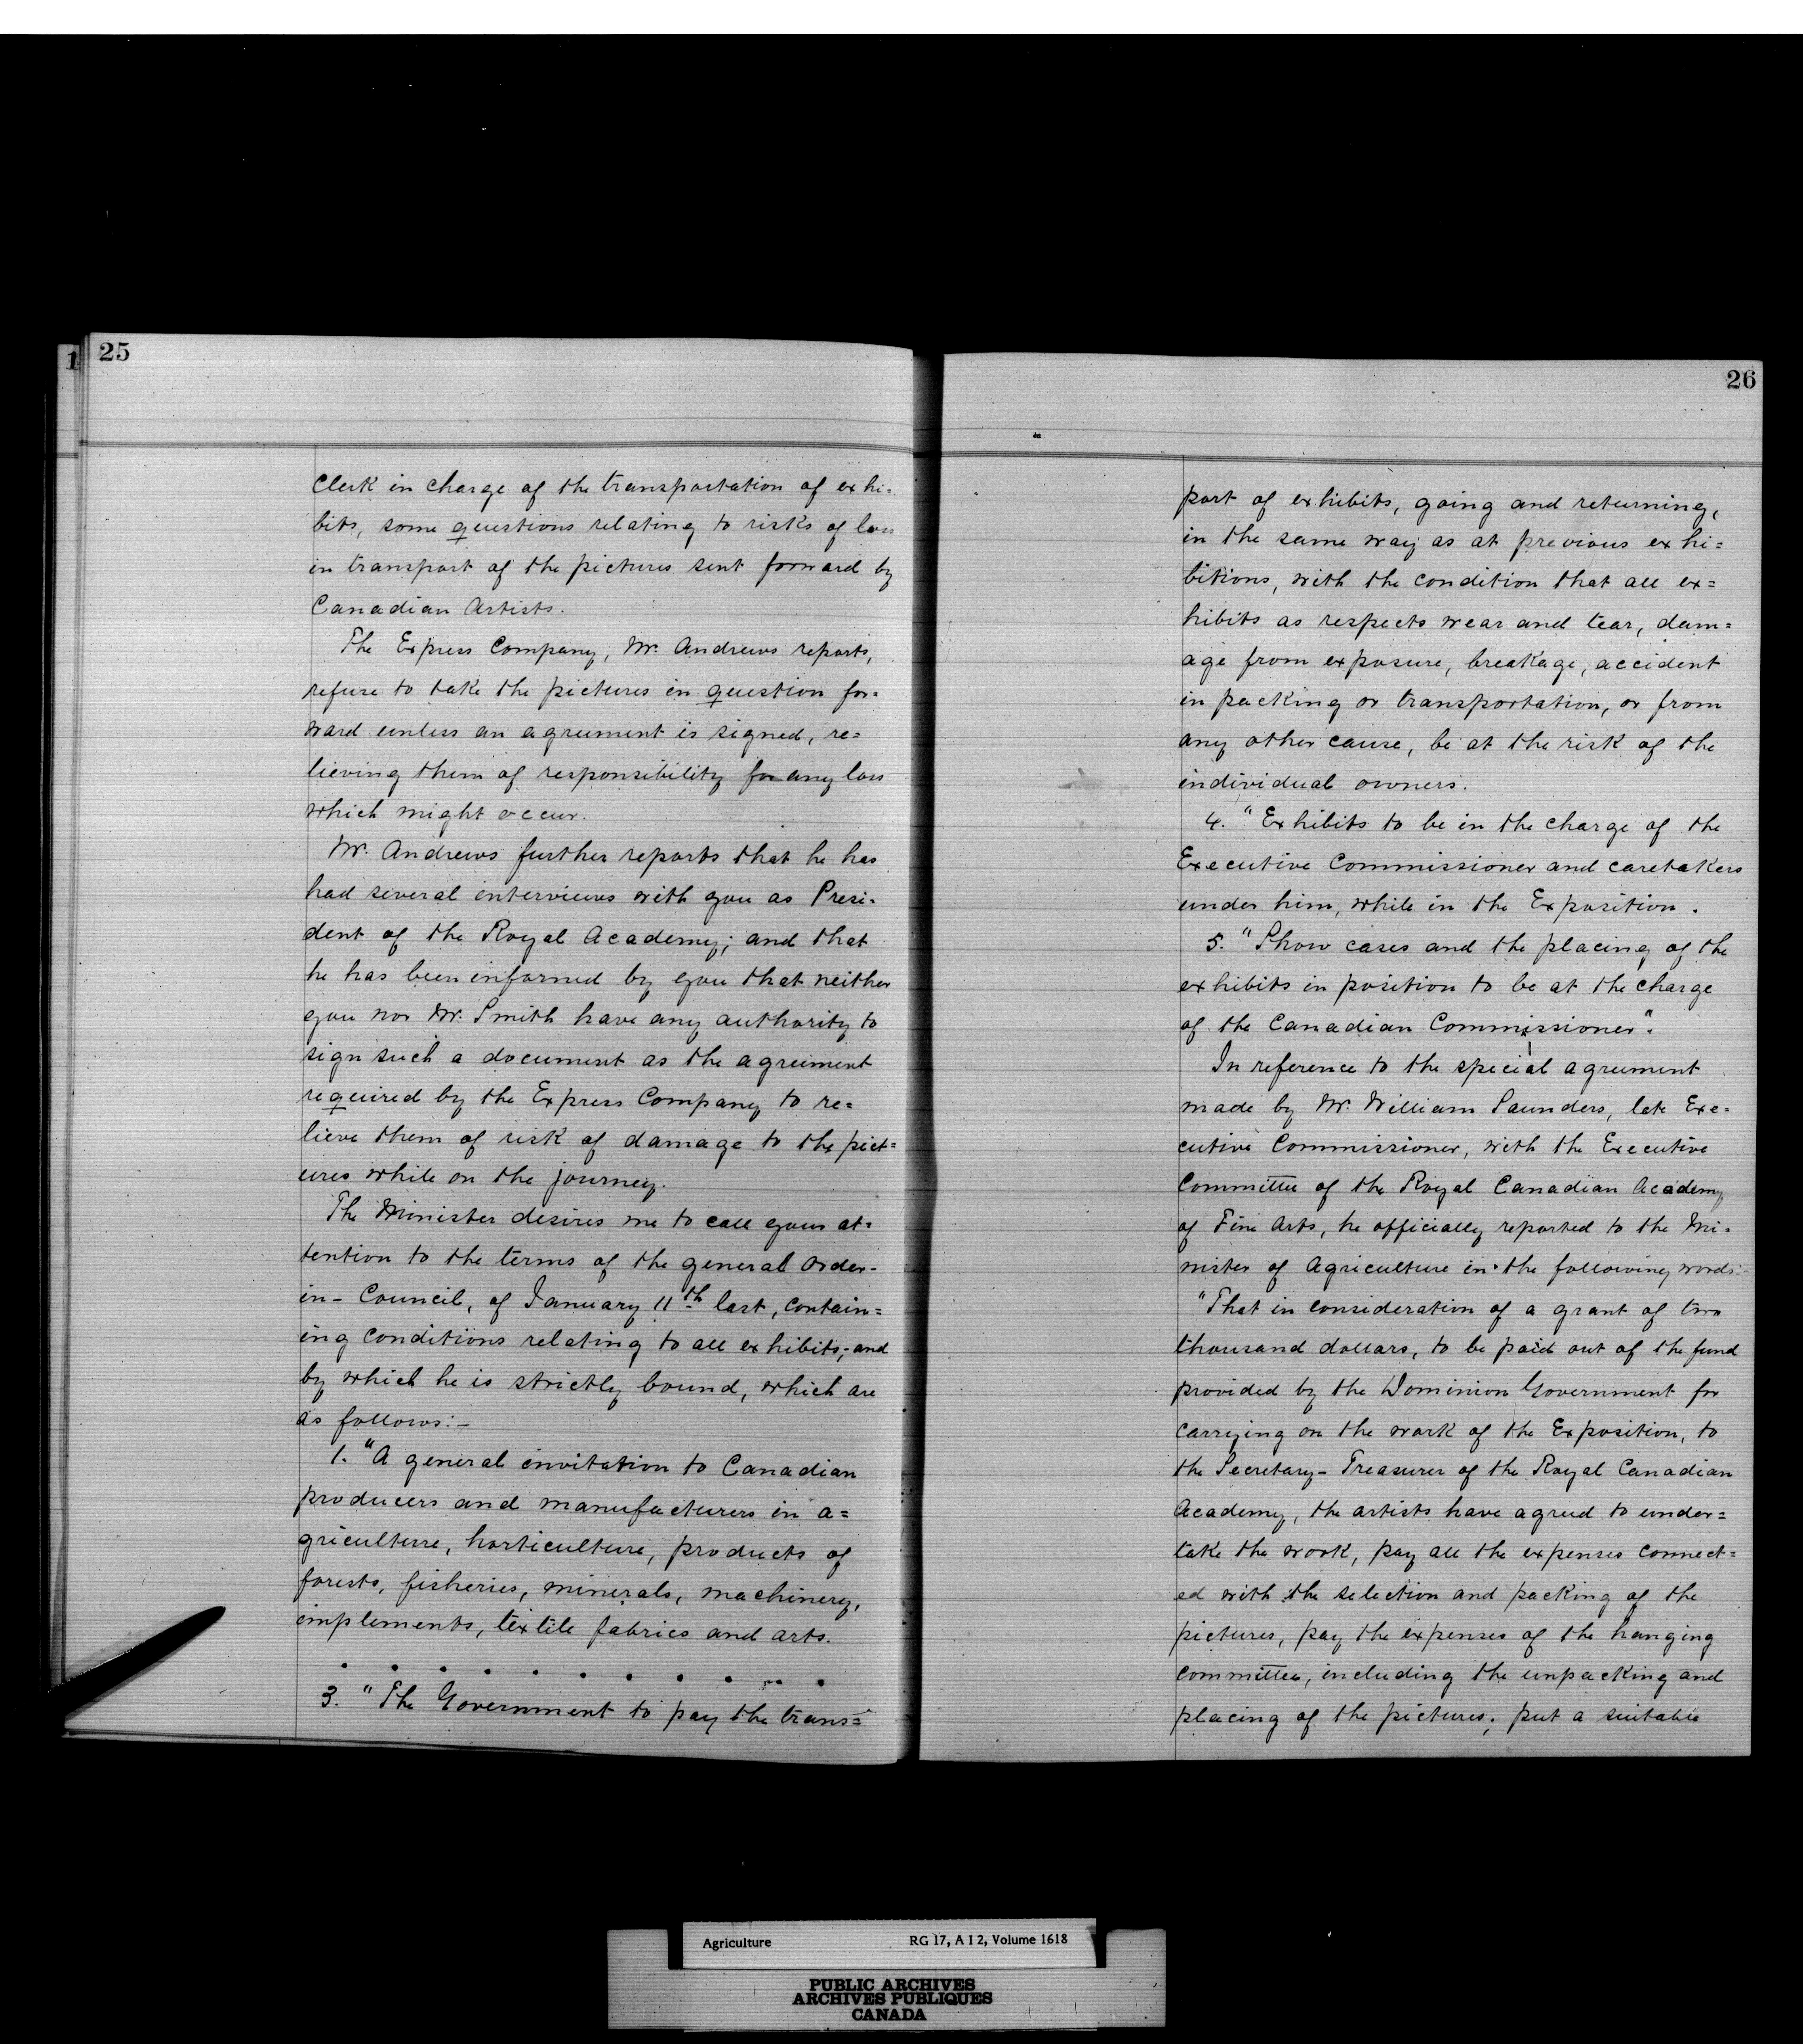 1
25
Clerk in charge of the transportation of exhi=
bits, some questions relating to risks of loss
in transport of the pictures sent forward by
Canadian Artists.
The Express Company, Mr. Andrews reports,
refuse to take the pictures in question for=
ward unless an agreement is signed, re=
lieving them of responsibility for any loss
which might occur.
Mr. Andrews further reports that he has
had several interviews with you as Presi=
dent of the Royal Academy; and that
he has been informed by you that neither
you nor Mr. Smith have any authority to
sign such a document as the agreement
required by the Express Company to re=
lieve them of risk of damage to the pict=
ures while on the journey.
The Minister desires me to call your at=
tention to the terms of the general Order-
in-Council, of January 11th last, contain=
ing conditions relating to all exhibits; and
by which he is strictly bound, which are
as follows:-
1. "A general invitation to Canadian
producers and manufacturers in a=
griculture, horticulture, products of
forests, fisheries, minerals, machinery,
implements, textile fabrics and arts.
. . . . . . . . . . .
3. "The Government to pay the trans=
26
port of exhibits, going and returning,
in the same way as at previous exhi=
bitions, with the condition that all ex=
hibits as respects wear and tear, dam=
age from exposure, breakage, accident
in packing or transportation, or from
any other cause, be at the risk of the
individual owners.
4. "Exhibits to be in the charge of the
Executive Commissioner and caretakers
under him, while in the Exposition.
5. "Show cases and the placing of the
exhibits in position to be at the charge
of the Canadian Commissioner".
In reference to the special agreement
made by Mr. William Saunders, late Exe=
cutive Commissioner, with the Executive
Committee of the Royal Canadian Academy
of Fine Arts, he officially reported to the Mi=
nister of Agriculture in the following words:-
"That in consideration of a grant of two
thousand dollars, to be paid out of the fund
provided by the Dominion Government for
carrying on the work of the Exposition, to
the Secretary-Treasurer of the Royal Canadian
Academy, the artists have agreed to under=
take the work, pay all the expenses connect=
ed with the selection and packing of the
pictures, pay the expenses of the hanging
committee, including the unpacking and
placing of the pictures; put a suitable
Agriculture RG 17, A I 2, Volume 1618
PUBLIC ARCHIVES
ARCHIVES PUBLIQUES
CANADA